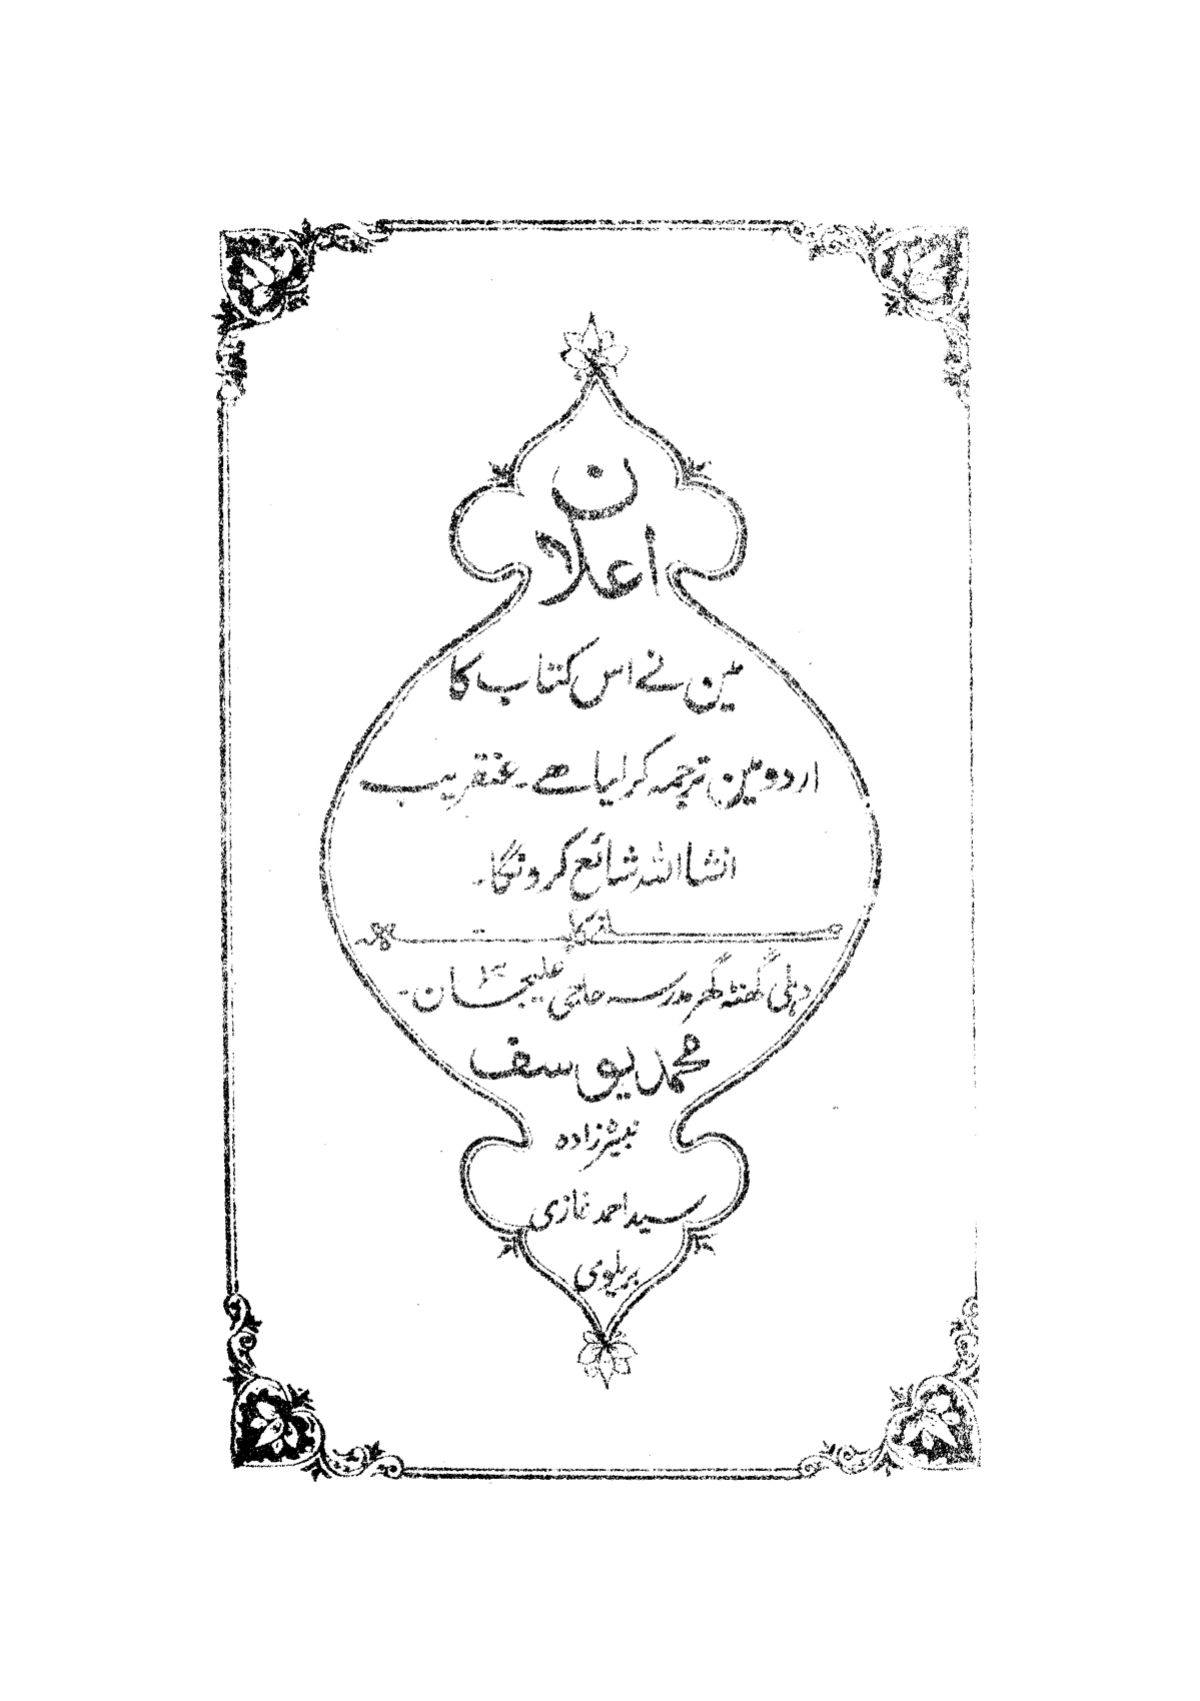 اعلان
مین نے اس کتاب کا
اردو مین ترجمہ کرلیا ہے۔ عنقریب
انشااللہ شائع کرونگا۔
ملنے کا پتہ
دہلی گھنٹہ گھر مدرسہ حاجی علیجان۔
محمد یوسف
سید احمد غازی
بریلوی